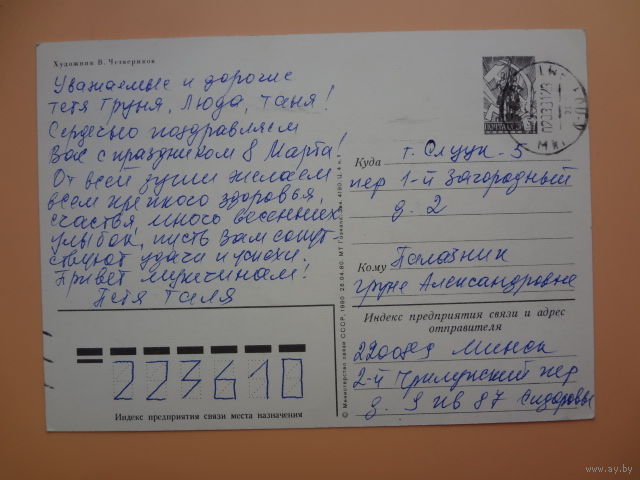 Художник В. Четвериков
Уважаемые и дорогие
тетя Груня, Люда, Таня!
Сердечно поздравляем
Вас с праздником 8 Марта!
От всей души желаем
всем крепкого здоровья,
счастья, много весенних
улыбок, пусть Вам сопут-
ствуют удачи и успехи.
Привет мужчинам!
Петя Галя
ПОЧТА СССР
Куда г. Слуцк-5
пер 1-й Загородный
д. 2
Кому Палазник
Груне Александровне
Индекс предприятия связи и адрес
отправителя
220089 Минск
2-й пер
д. 9 кв 87 Сидоровы
223610
Индекс предприятия связи места назначения
© Министерство связи СССР, 1980 28.04.80. МТ Гознака.
www.ay.by